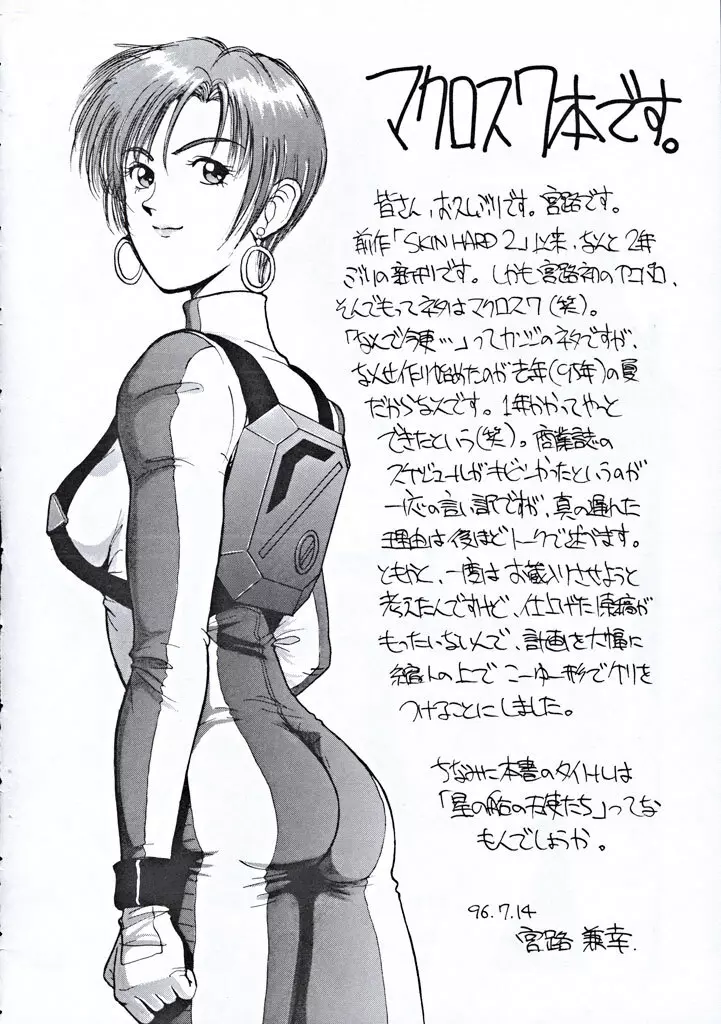 マクロス7本です。
皆さん、お久しぶりです。宮路です。
前作「SKIN HARD 2」以来、なんと2年
ぶりの新刊です。しかも宮路初のアニパロ、
そんでもってネタはマクロス7(笑)。
「なんで今更…」ってカンジのネタですが、
なんせ作り始めたのが去年('95年)の夏
だからなんです。1年かかってやっと
できたという(笑)。商業誌の
スケジュールがキビシかったというのが
一応の言い訳ですが、真の遅れた
理由は後ほどトークで述べます。
ともかく、一度はお蔵入りさせようと
考えたんですけど、仕上げた原稿が
もったいないんで、計画を大幅に
縮小の上でこーゆー形でケリを
つけることにしました。
ちなみに本書のタイトルは
「星の船の天使たち」ってな
もんでしょうか。
96.7.14
宮路兼幸.